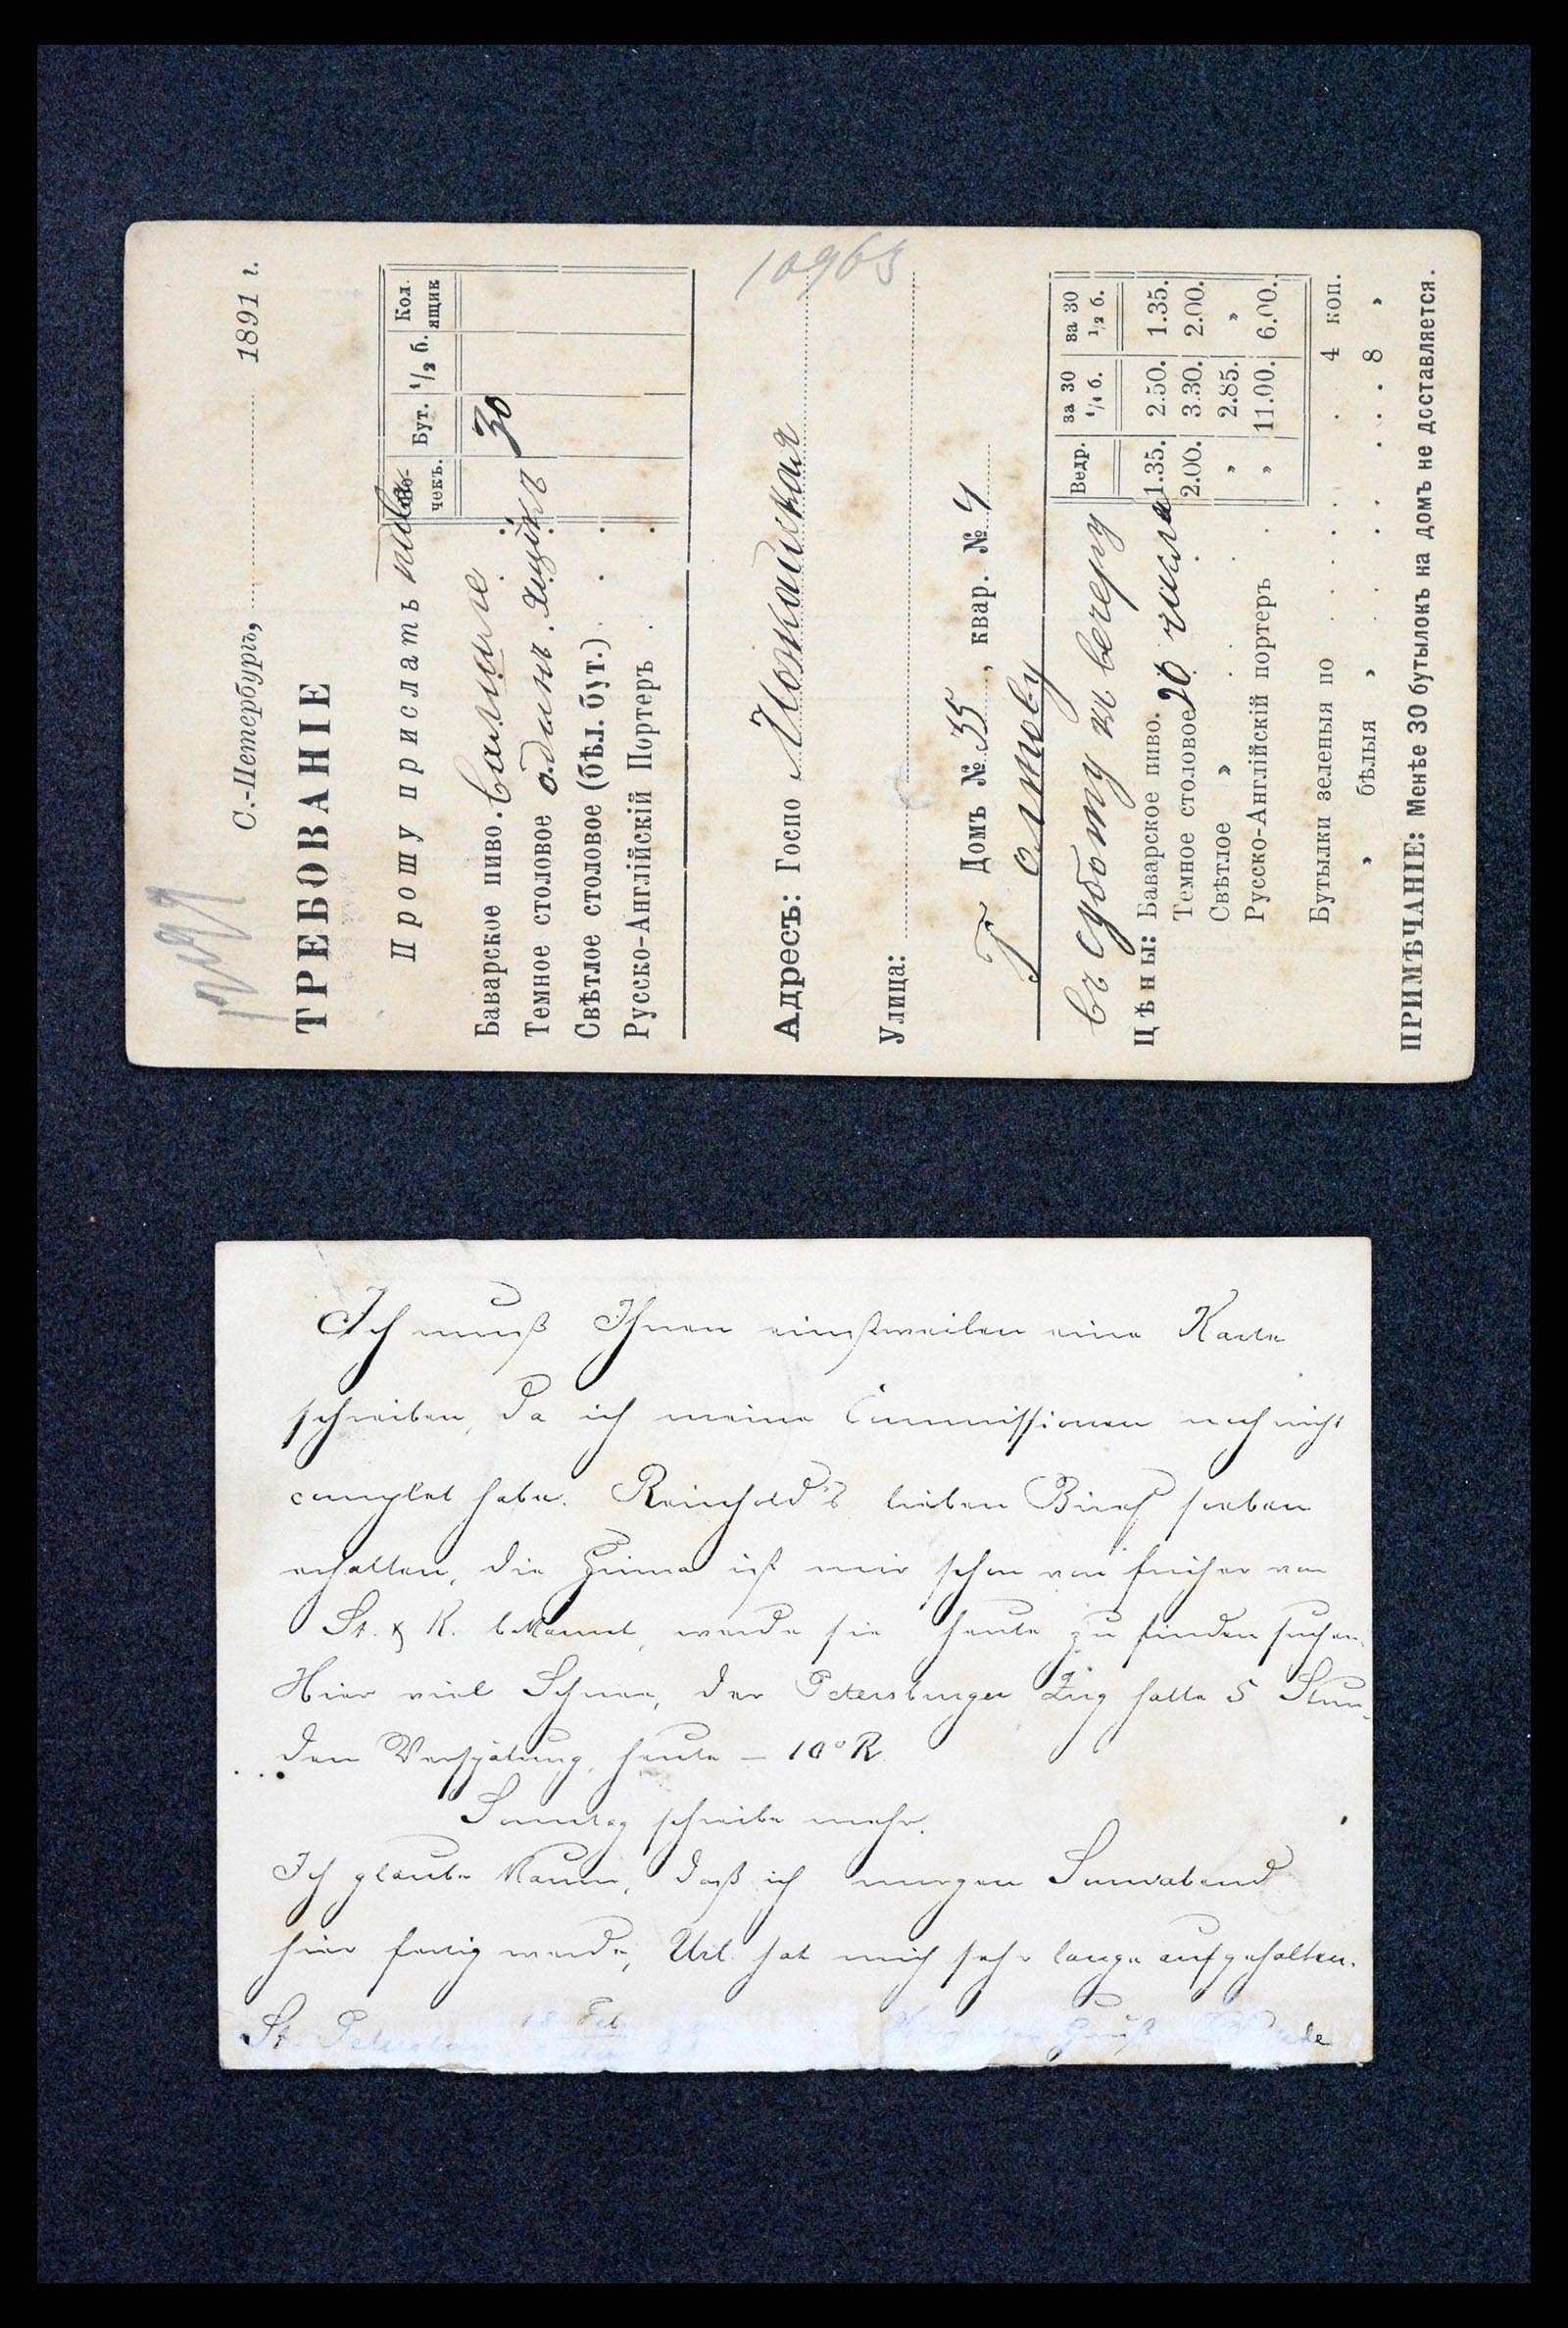 С.-Петербургъ, 1891 г.
ТРЕБОВАНІЕ
Прошу прислать пива
Бо-
чекъ.
Бут.
1/2 б.
Кол.
ящик
Баварское пиво. 30
Темное столовое одинъ ящикъ
Свѣтлое столовое (бѣл. бут.)
Русско-Англійскій Портеръ
10963
Адресъ: Госпо Можайская
Улица:
Домъ № 35, квар. № 4
въ суботу къ вечеру
Ведр.
за 30
1/1 б.
за 30
1/2 б.
Цѣны: Баварское пиво. 1.35. 2.50. 1.35.
Темное столовое 20 числа 2.00. 3.30. 2.00.
Свѣтлое » » 2.85. »
Русско-Англійскій портеръ » 11.00. 6.00.
Бутылки зеленыя по 4 коп.
» бѣлыя » 8 »
ПРИМѢЧАНІЕ: Менѣе 30 бутылокъ на домъ не доставляется.
Ich muß Ihnen einstweilen eine Karte
schreiben, da ich meine Commissionen noch nicht
complet habe. Reinhold's lieben Brief soeben
erhalten, die Firma ist mir schon von früher von
St. & K. bekannt, werde sie heute zu finden suchen.
Hier viel Schnee, der Petersburger Zug hatte 5 Stun-
den Verspätung, heute – 10° R.
Sonntag schreibe mehr.
Ich glaube kaum, daß ich morgen Sonnabend
hier fertig werde, hat mich sehr lange aufgehalten.
St. Petersburg 18 Feb Gruß